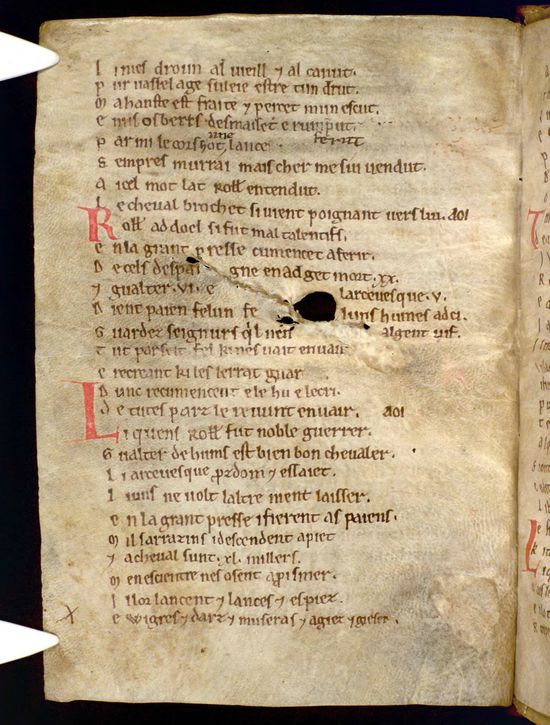 Li nies droun al vieill ⁊ al canut.
Pur vasselage suleie estre tun drut.
Ma hanste est fraite ⁊ percet mun escut.
e mis osbercs desmailet e rumput.
Par mi le cors hot une lance ferut
Sempres murrai mais cher me sui vendut.
A icel mot lat Roll̃ entendut.
Le cheval brochet si vient poignant vers lui. aoi
Roll̃ ad doel si fut maltalentifs.
en la grant presse cumencet a ferir.
De cels despai gne en ad get mort .xx.
⁊ gualter .vi. e larcevesque .v.
Dient paien felun humes ad ci.
Guardez seignurs ql nen algent vif.
Tut par seit fel ki nes vait envair
e recreant ki les lerrat guar
Dunc recumencent e le hu e le cri.
De tutes parz le revunt envair. aoi
Li quens Roll̃ fut noble guerrer.
Gualter de hums est bien bon chevaler.
Li arcevesque prdom ⁊ essaiet.
Li uns ne volt laltre nient laisser.
en la grant presse i fierent as paiens.
Mil sarrazins i descendent a piet
⁊ a cheval sunt .xl. millers.
Men escientre nes osent aprismer.
Il lor lancent ⁊ lances ⁊ espiez.
e wigres ⁊ darz ⁊ museras ⁊ agiez ⁊ gieser.